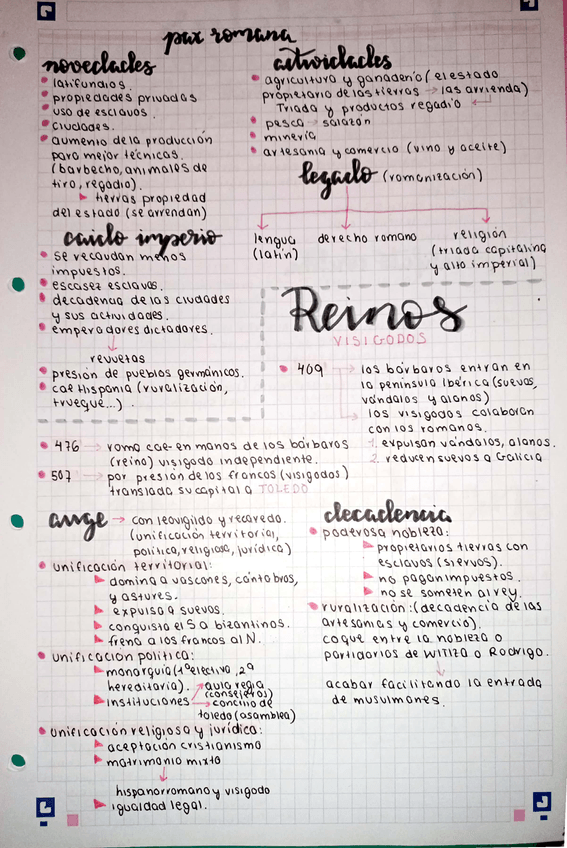 pax romana
novedades
latifundios.
propiedades privadas
uso de esclavos.
ciudades.
aumento de la producción
para mejor técnicas.
(barbecho, animales de
tiro, regadío).
tierras propiedad
del estado (se arrendan)
actividades
agricultura y ganadería (el estado
propietario de las tierras → las arrienda)
Triada y productos regadío
pesca → salazón
minería
artesanía y comercio (vino y aceite)
legado (romanización)
lengua
(latín)
derecho romano
religión
(triada capitalina
y alto imperial)
caída imperio
se recaudan menos
impuestos.
escasez esclavos.
decadencia de las ciudades
y sus actividades.
emperadores dictadores.
revueltas
presión de pueblos germánicos.
cae Hispania (ruralización,
trueque...)
Reinos
VISIGODOS
409 → los bárbaros entran en
la península Ibérica (suevos,
vándalos y alanos)
los visigodos colaboran
con los romanos.
1. expulsan vándalos, alanos.
2. reducen suevos a Galicia
476 → roma cae en manos de los bárbaros
(reino) visigodo independiente.
507 → por presión de los francos (visigodos)
translada su capital a TOLEDO
auge → con leovigildo y recaredo.
(unificación territorial,
política, religiosa, jurídica)
unificación territorial:
domina a vascones, cántabros,
y astures.
expulsa a suevos.
conquista el S a bizantinos.
frena a los francos al N.
unificación política:
monarquía (1º electiva, 2º
hereditaria).
instituciones
aula regia
(consejeros)
concilio de
toledo (asamblea)
unificación religiosa y jurídica:
aceptación cristianismo
matrimonio mixto
hispanorromano y visigodo
igualdad legal.
decadencia
poderosa nobleza:
propietarios tierras con
esclavos (siervos).
no pagan impuestos.
no se someten al rey.
ruralización: (decadencia de las
artesanías y comercio).
coque entre la nobleza o
partidarios de WITIZA o Rodrigo.
acabar facilitando la entrada
de musulmanes.